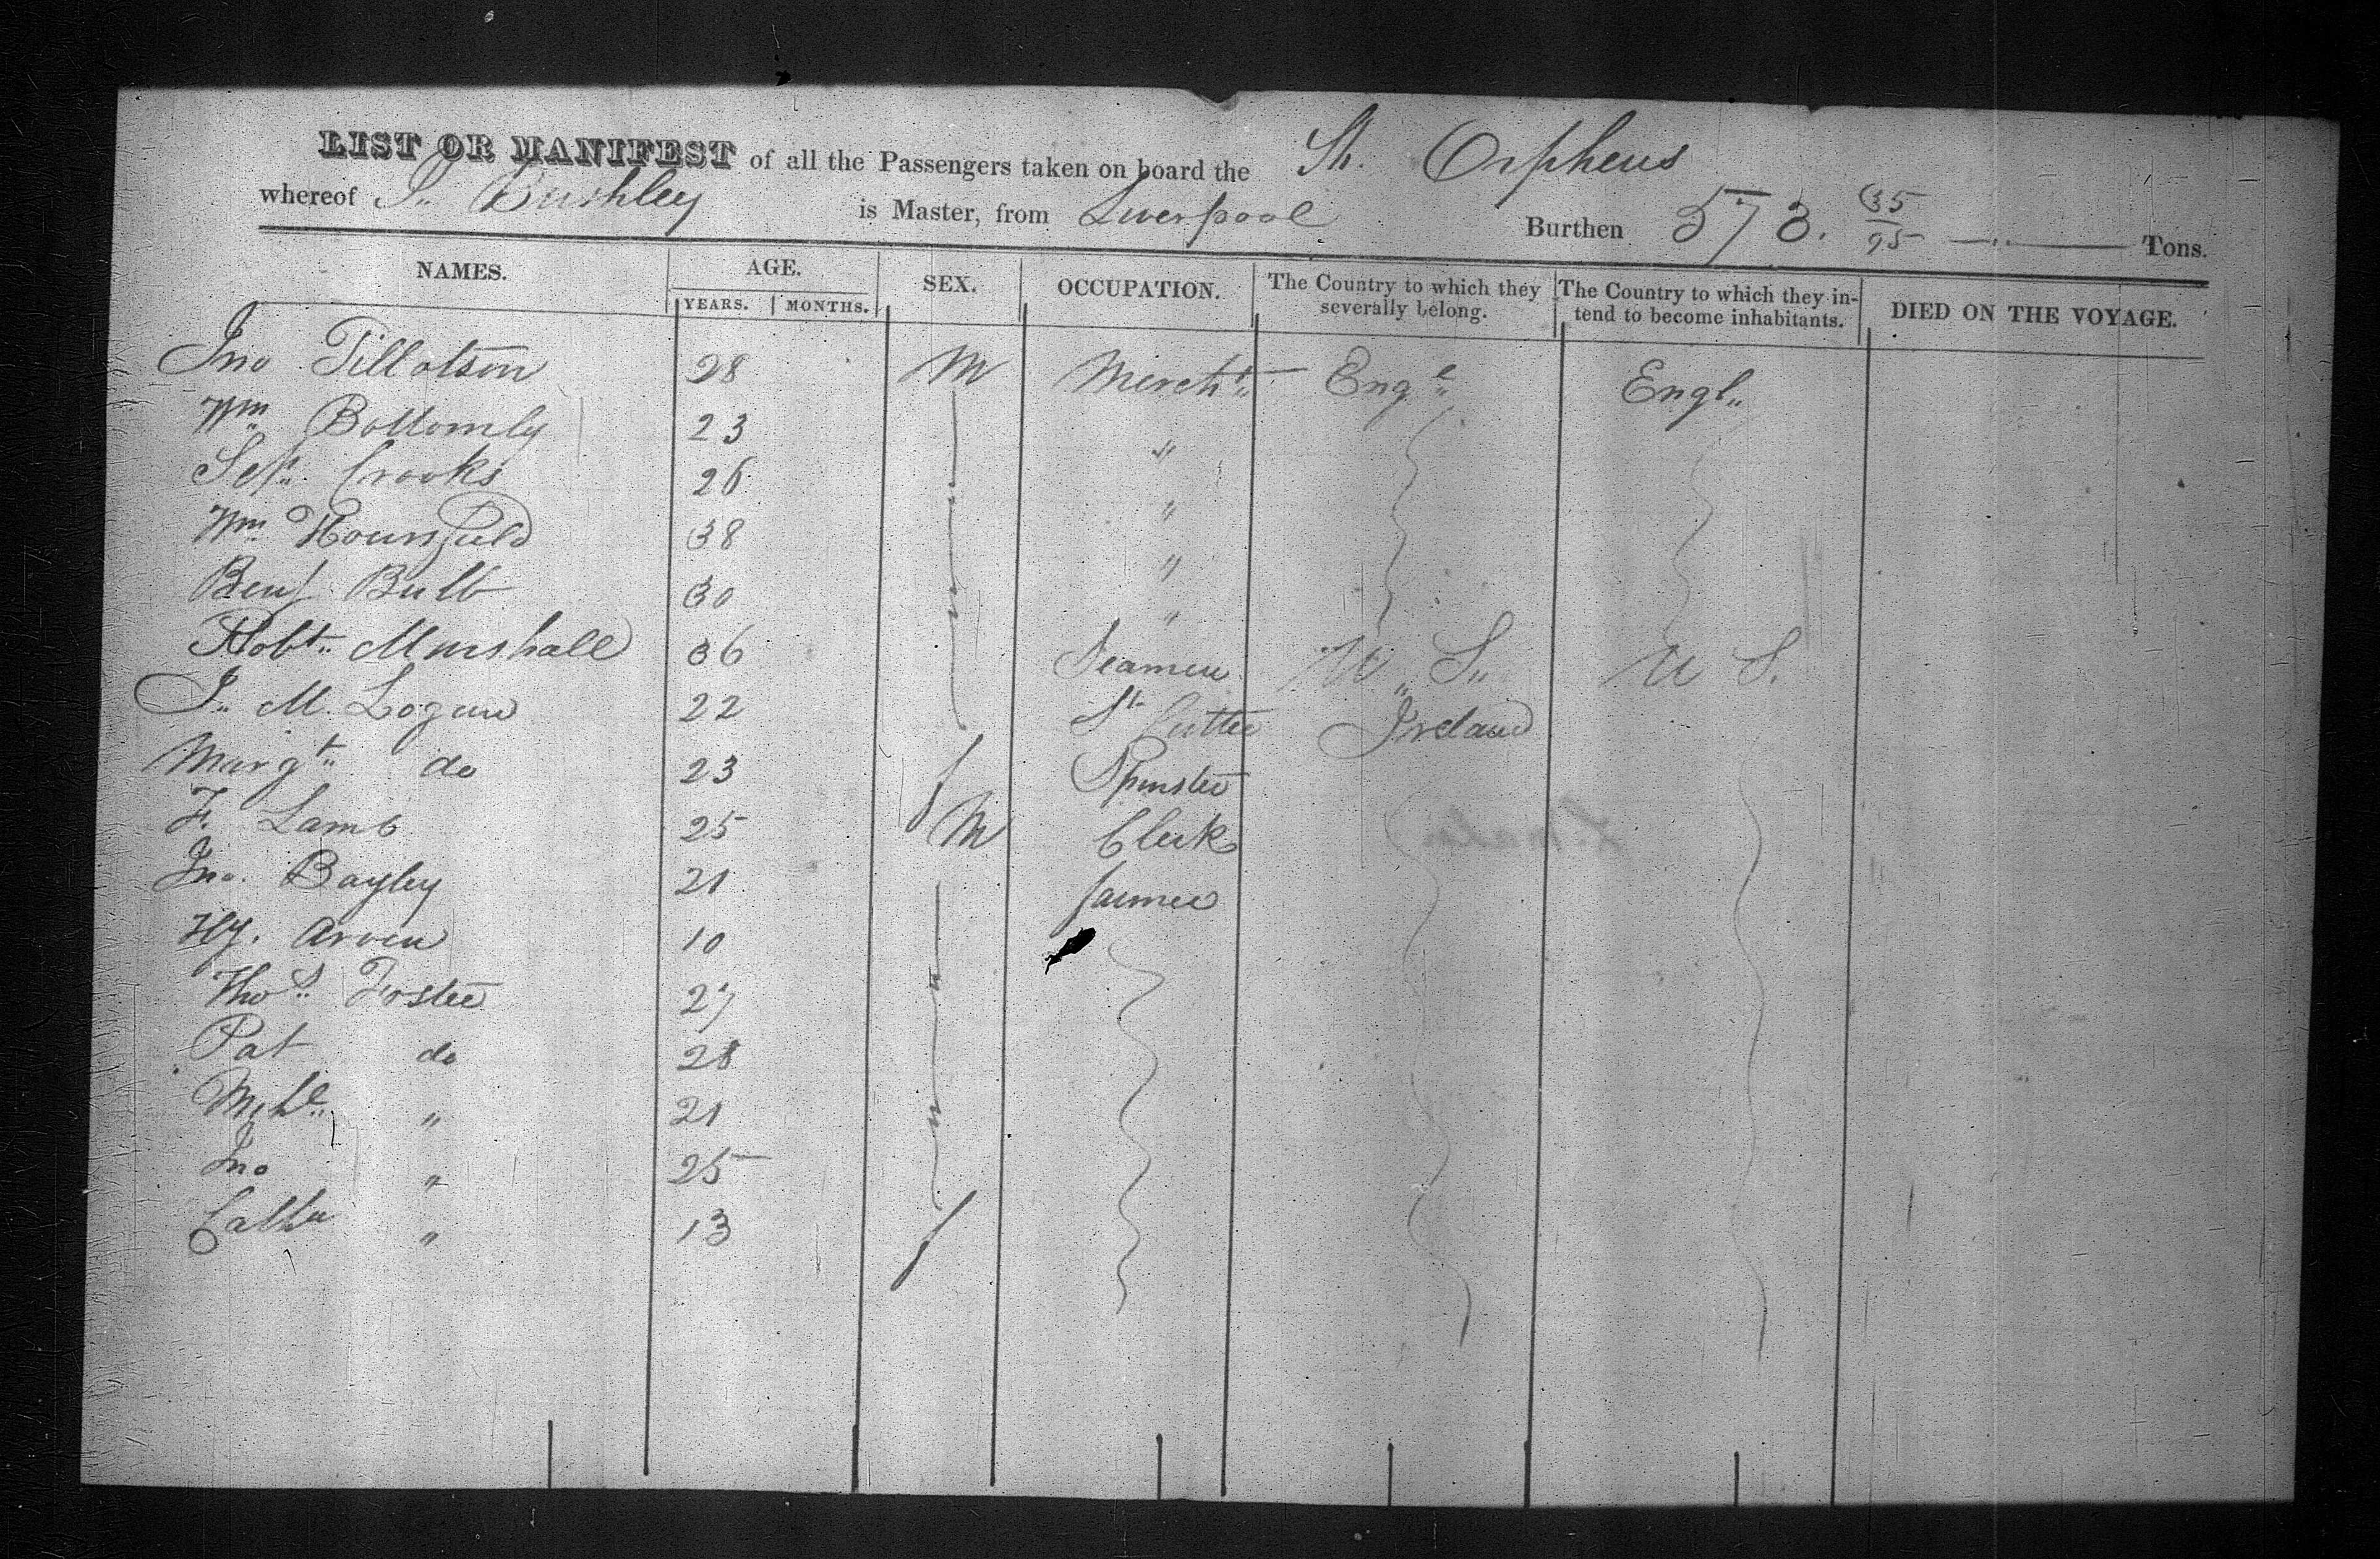 LIST OR MANIFEST of all the Passengers taken on board the Sh. Orpheus
whereof I. Burshley is Master, from Liverpool Burthen 573. 35/95 Tons.
NAMES. AGE. SEX. OCCUPATION. The Country to which they severally belong. The Country to which they intend to become inhabitants. DIED ON THE VOYAGE.
YEARS. MONTHS.
Jno Tillotson 28 M Mercht Engl Engl
Wm Bottomly 23 "
Crooks 26 "
Wm Hounsfield 38 "
Benj Bulb 30 "
Robt Marshall 36 Seamen U S. U S.
J. M. Logan 22 St Cutter Ireland
Margt do 23 f Spinster
F. Lamb 25 M Clerk
Jno. Bayley 21 farmer
Hy. Arven 10
Thos Foster 27
Pat do 28
Michl " 21
Jno " 25
Cathn " 13 f